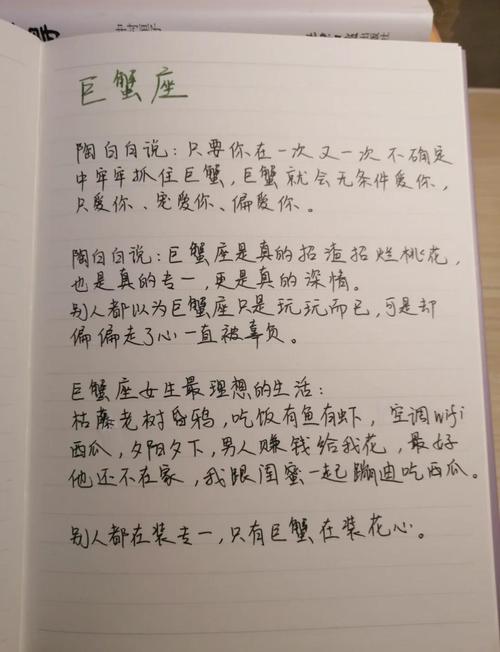 巨蟹座
陶白白说：只要你在一次又一次不确定
中牢牢抓住巨蟹，巨蟹就会无条件爱你，
只爱你、宠爱你、偏爱你。
陶白白说：巨蟹座是真的招渣招烂桃花，
也是真的专一，更是真的深情。
别人都以为巨蟹座只是玩玩而已，可是却
偏偏走了心一直被辜负。
巨蟹座女生最理想的生活：
枯藤老树昏鸦，吃饭有鱼有虾，空调wifi
西瓜，夕阳夕下，男人赚钱给我花，最好
他还不在家，我跟闺蜜一起蹦迪吃西瓜。
别人都在装专一，只有巨蟹在装花心。